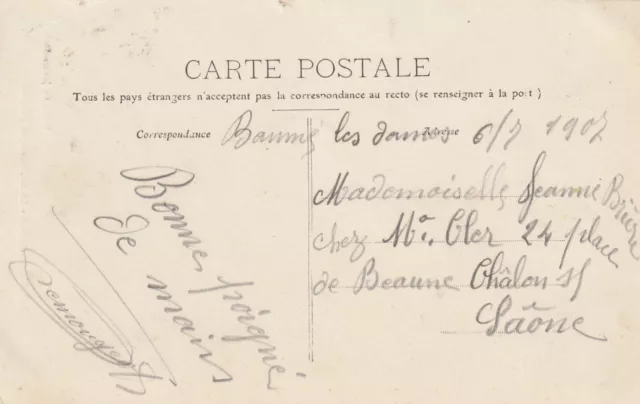 CARTE POSTALE
Tous les pays étrangers n'acceptent pas la correspondance au recto (se renseigner à la port)
Correspondance
Adresse
Baume les dames 6/7 1907
Mademoiselle Jeanne Brière
chez Mr. Cler 24 place
de Beaune Châlon s/
Saône
Bonnes poigné
de mains